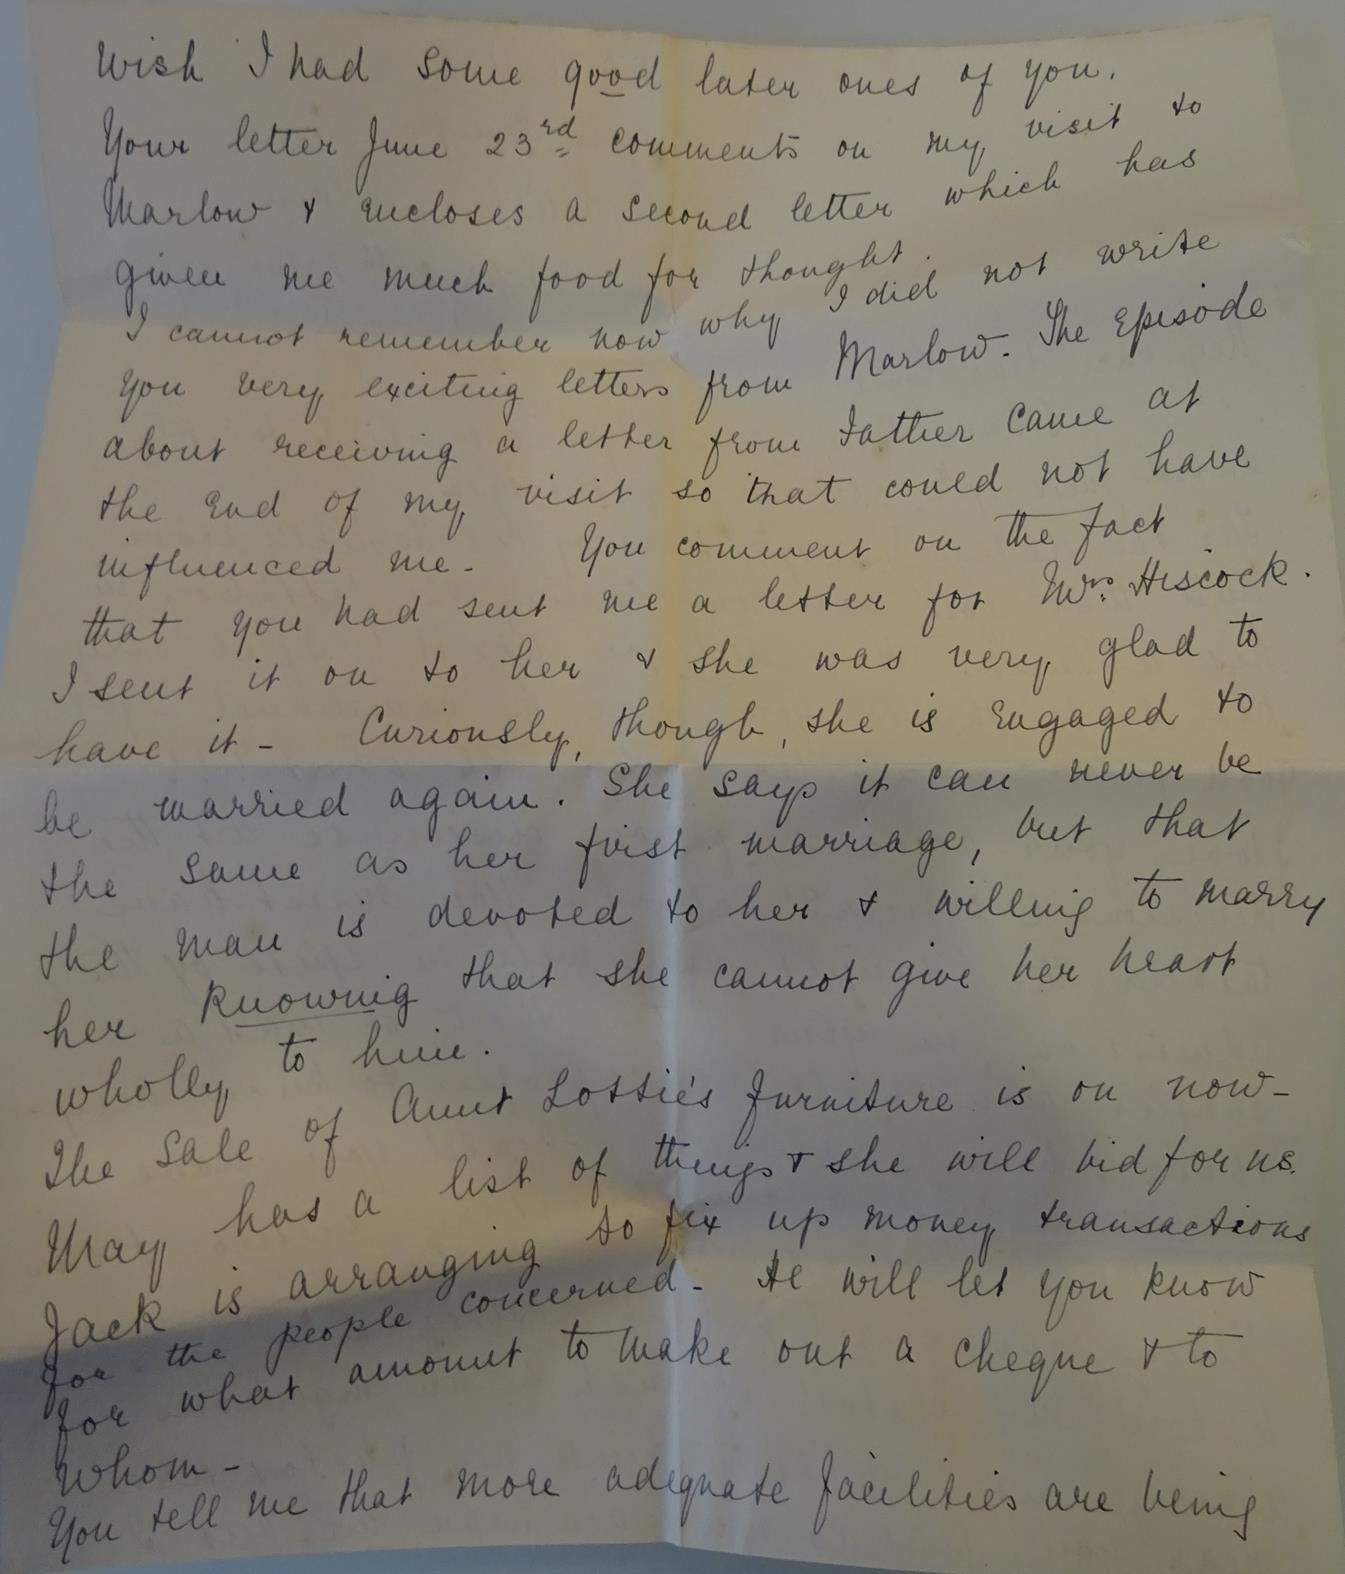 Wish I had some good later ones of you.
Your letter June 23rd comments on my visit to
Marlow & encloses a second letter which has
given me much food for thought.
I cannot remember now why I did not write
you very exciting letters from Marlow. The Episode
about receiving a letter from Father came at
the end of my visit so that could not have
influenced me. You comment on the fact
that you had sent me a letter for Mrs. Hiscock.
I sent it on to her & she was very glad to
have it - Curiously, though, she is engaged to
be married again. She says it can never be
the same as her first marriage, but that
the man is devoted to her & willing to marry
her knowing that she cannot give her heart
wholly to him.
The Sale of Aunt Lottie's furniture is on now -
May has a list of things & she will bid for us.
Jack is arranging to fix up money transactions
for the people concerned - He will let you know
for what amount to make out a cheque & to
whom -
You tell me that more adequate facilities are being